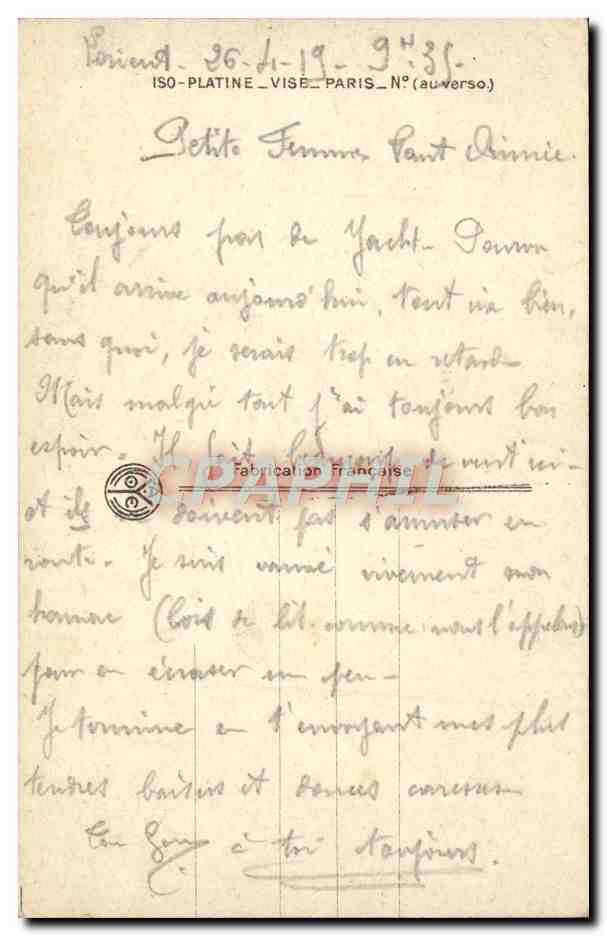 Lorient - 26-4-19 - 9H.35 -
ISO-PLATINE_VISÉ_PARIS_N° (au verso.)
Petite Femme Tant Aimée.
Toujours pas de Yacht. Pourvu
qu'il arrive aujourd'hui, tout ira bien,
sans quoi, je serais trop en retard
Mais malgré tout j'ai toujours bon
espoir. Il fait de vent ici -
Fabrication Française
CPAPHIL
et ils doivent pas s'amuser en
route. Je suis vanné vivement mon
hamac (bois de lit comme nous l'appelons)
pour en écraser un peu -
Je termine en t'envoyant mes plus
tendres baisers et douces caresses
Ton à toi toujours.